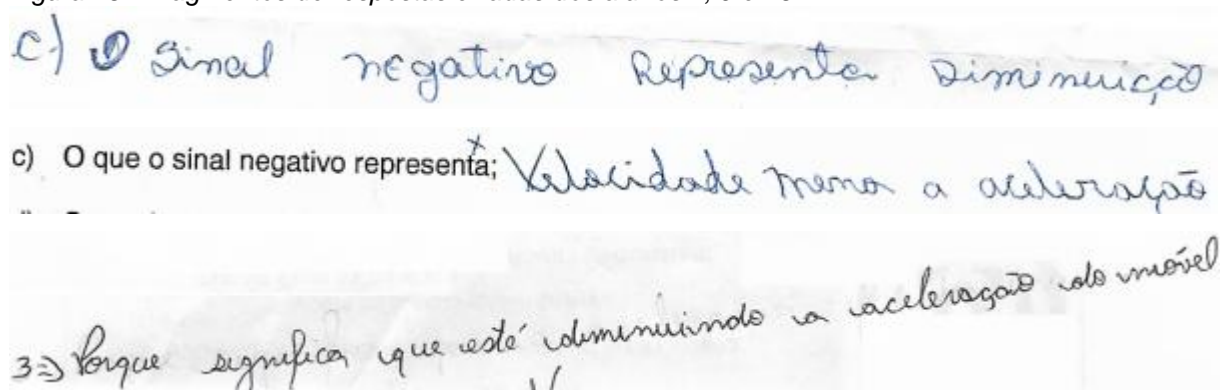 c) O Sinal negativo Representa Diminuição
c) O que o sinal negativo representa; Velocidade menor a aceleração
3=> Porque significa que esté diminuindo a aceleração do movél